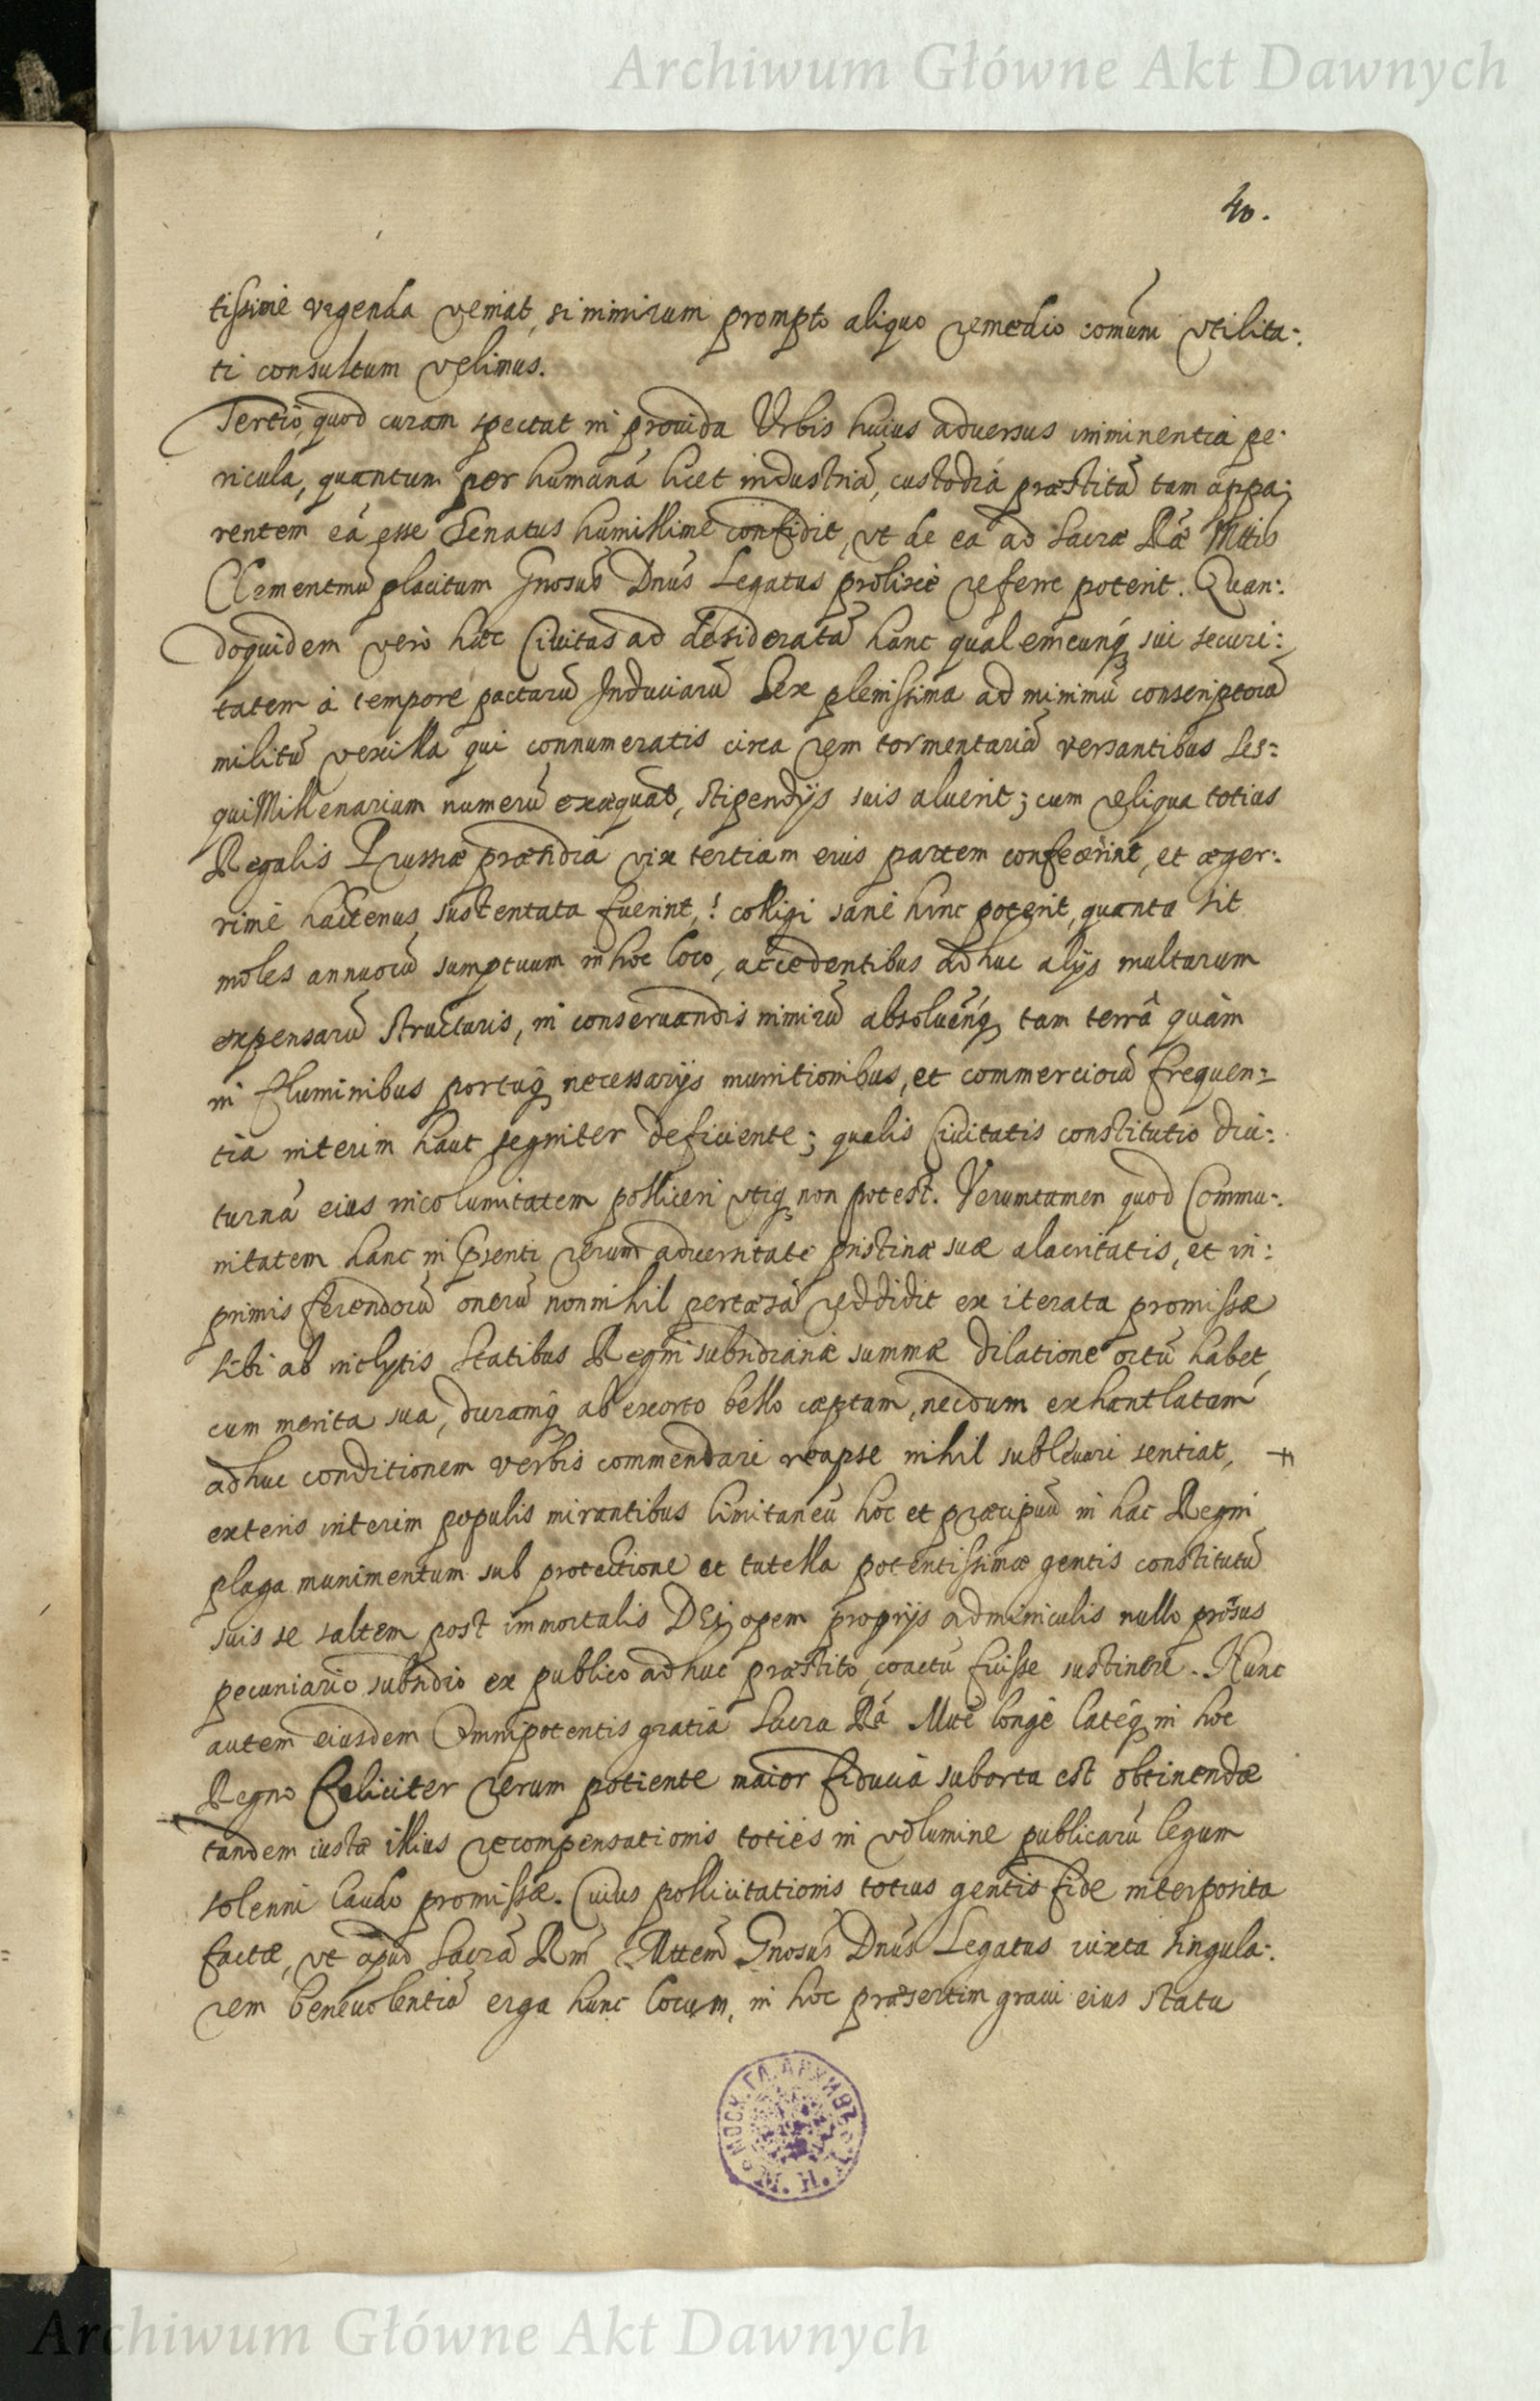 Archiwum Główne Akt Dawnych
40.
tissimè urgenda veniat, si nimirum prompto aliquo remedio comuni utilita-
ti consultum velimus.
Tertiò, quod curam spectat in prouida Urbis huius adversus imminentia pe-
ricula, quantum per humanã licet industriã, custodiã præstitã tam appa-
rentem eã esse Senatus humillimè confidit, ut de ea ad Sacræ Ræ Mttis
Clementmũ placitum Gnosus Dnus Legatus prolixè referre poterit. Quan-
doquidem verò hæc Civitas ad desideratã hanc qualemcunq sui securi-
tatem à tempore pactarũ Induciarũ Sex plenissima ad minimũ conscriptorũ
militũ vexilla qui connumeratis circa rem tormentariã versantibus Ses-
quiMillenarium numerũ exæquat, stipendijs suis aluerit; cum reliqua totius
Regalis Prussiæ præsidia vix tertiam eius partem confecerint, et æger-
rimè hactenus sustentata fuerint,! colligi sanè hinc poterit, quanta sit
moles annuorũ sumptuum in hoc loco, accedentibus adhuc alijs multarum
expensarũ structuris, in conservandis nimirũ absoluẽnq tam terrâ quàm
in fluminibus portuq necessarijs munitionibus, et commerciorũ frequen-
tia interim haut segniter deficiente; qualis Civitatis constitutio diu-
turnã eius incolumitatem polliceri utiq non potest. Veruntamen quod Commu-
nitatem hanc in psenti rerum adversitate pristinæ suæ alacritatis, et in-
primis ferendorũ onerũ nonnihil pertæsã reddidit ex iterata promissæ
sibi ab inclytis Statibus Regni subsidiariæ summæ dilatione ortũ habet,
cum merita sua, duramq ab exorto bello cæptam, necdum exhantlatam
adhuc conditionem verbis commendari reapse nihil sublevari sentiat,
exteris interim populis mirantibus limitaneũ hoc et præcipuũ in hac Regni
plaga munimentum sub protectione et tutella potentissimæ gentis constitutũ
suis se saltem post immortalis DEI opem proprijs adminiculis nullo prosus
pecuniario subsidio ex publico adhuc præstito, coactũ fuisse sustinere. Nunc
autem eiusdem Omnipotentis gratiâ Sacra Râ Mtte longè latéq in hoc
Regno feliciter rerum potiente maior fiducia suborta est obtinendæ
tandem iustæ illius recompensationis toties in volumine publicarũ legum
solenni laudo promissæ. Cuius pollicitationis totius gentis fide interposita
factæ, ut apud Sacrã Rm Mttem Gnosus Dnus Legatus iuxta singula-
rem benevolentiã erga hunc locum, in hoc præsertim graui eius statu
Archiwum Główne Akt Dawnych